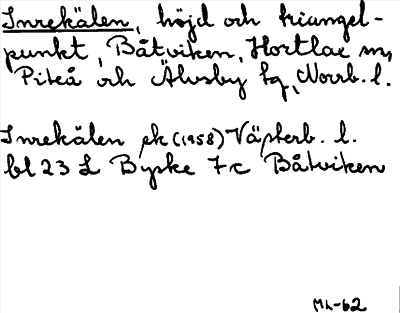 Inrekälen, höjd och triangel-
punkt, Båtviken, Hortlax sn,
Piteå och Älvsby tg, Norrb. l.
Inrekälen ek (1958) Västerb. l.
bl 23 L Byske 7c Båtviken
ML-62